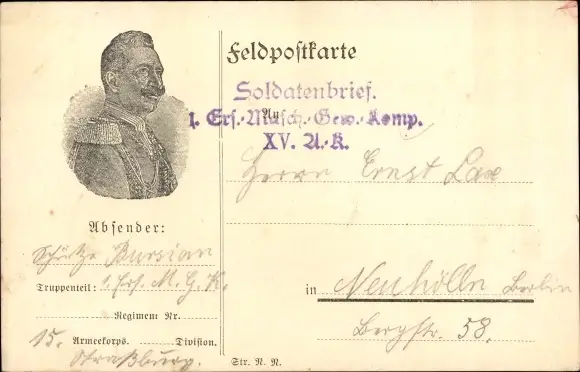 Feldpostkarte
Soldatenbrief.
An
1. Ers.-Masch.-Gew.-Komp.
XV. A.-K.
Herrn Ernst Lax
in Neukölln Berlin
Bergstr. 58.
Absender:
Schütze Bursian
Truppenteil: 1. Ers. M. G. K.
Regiment Nr.
15. Armeekorps. Division.
Straßburg.
Str. N. N.